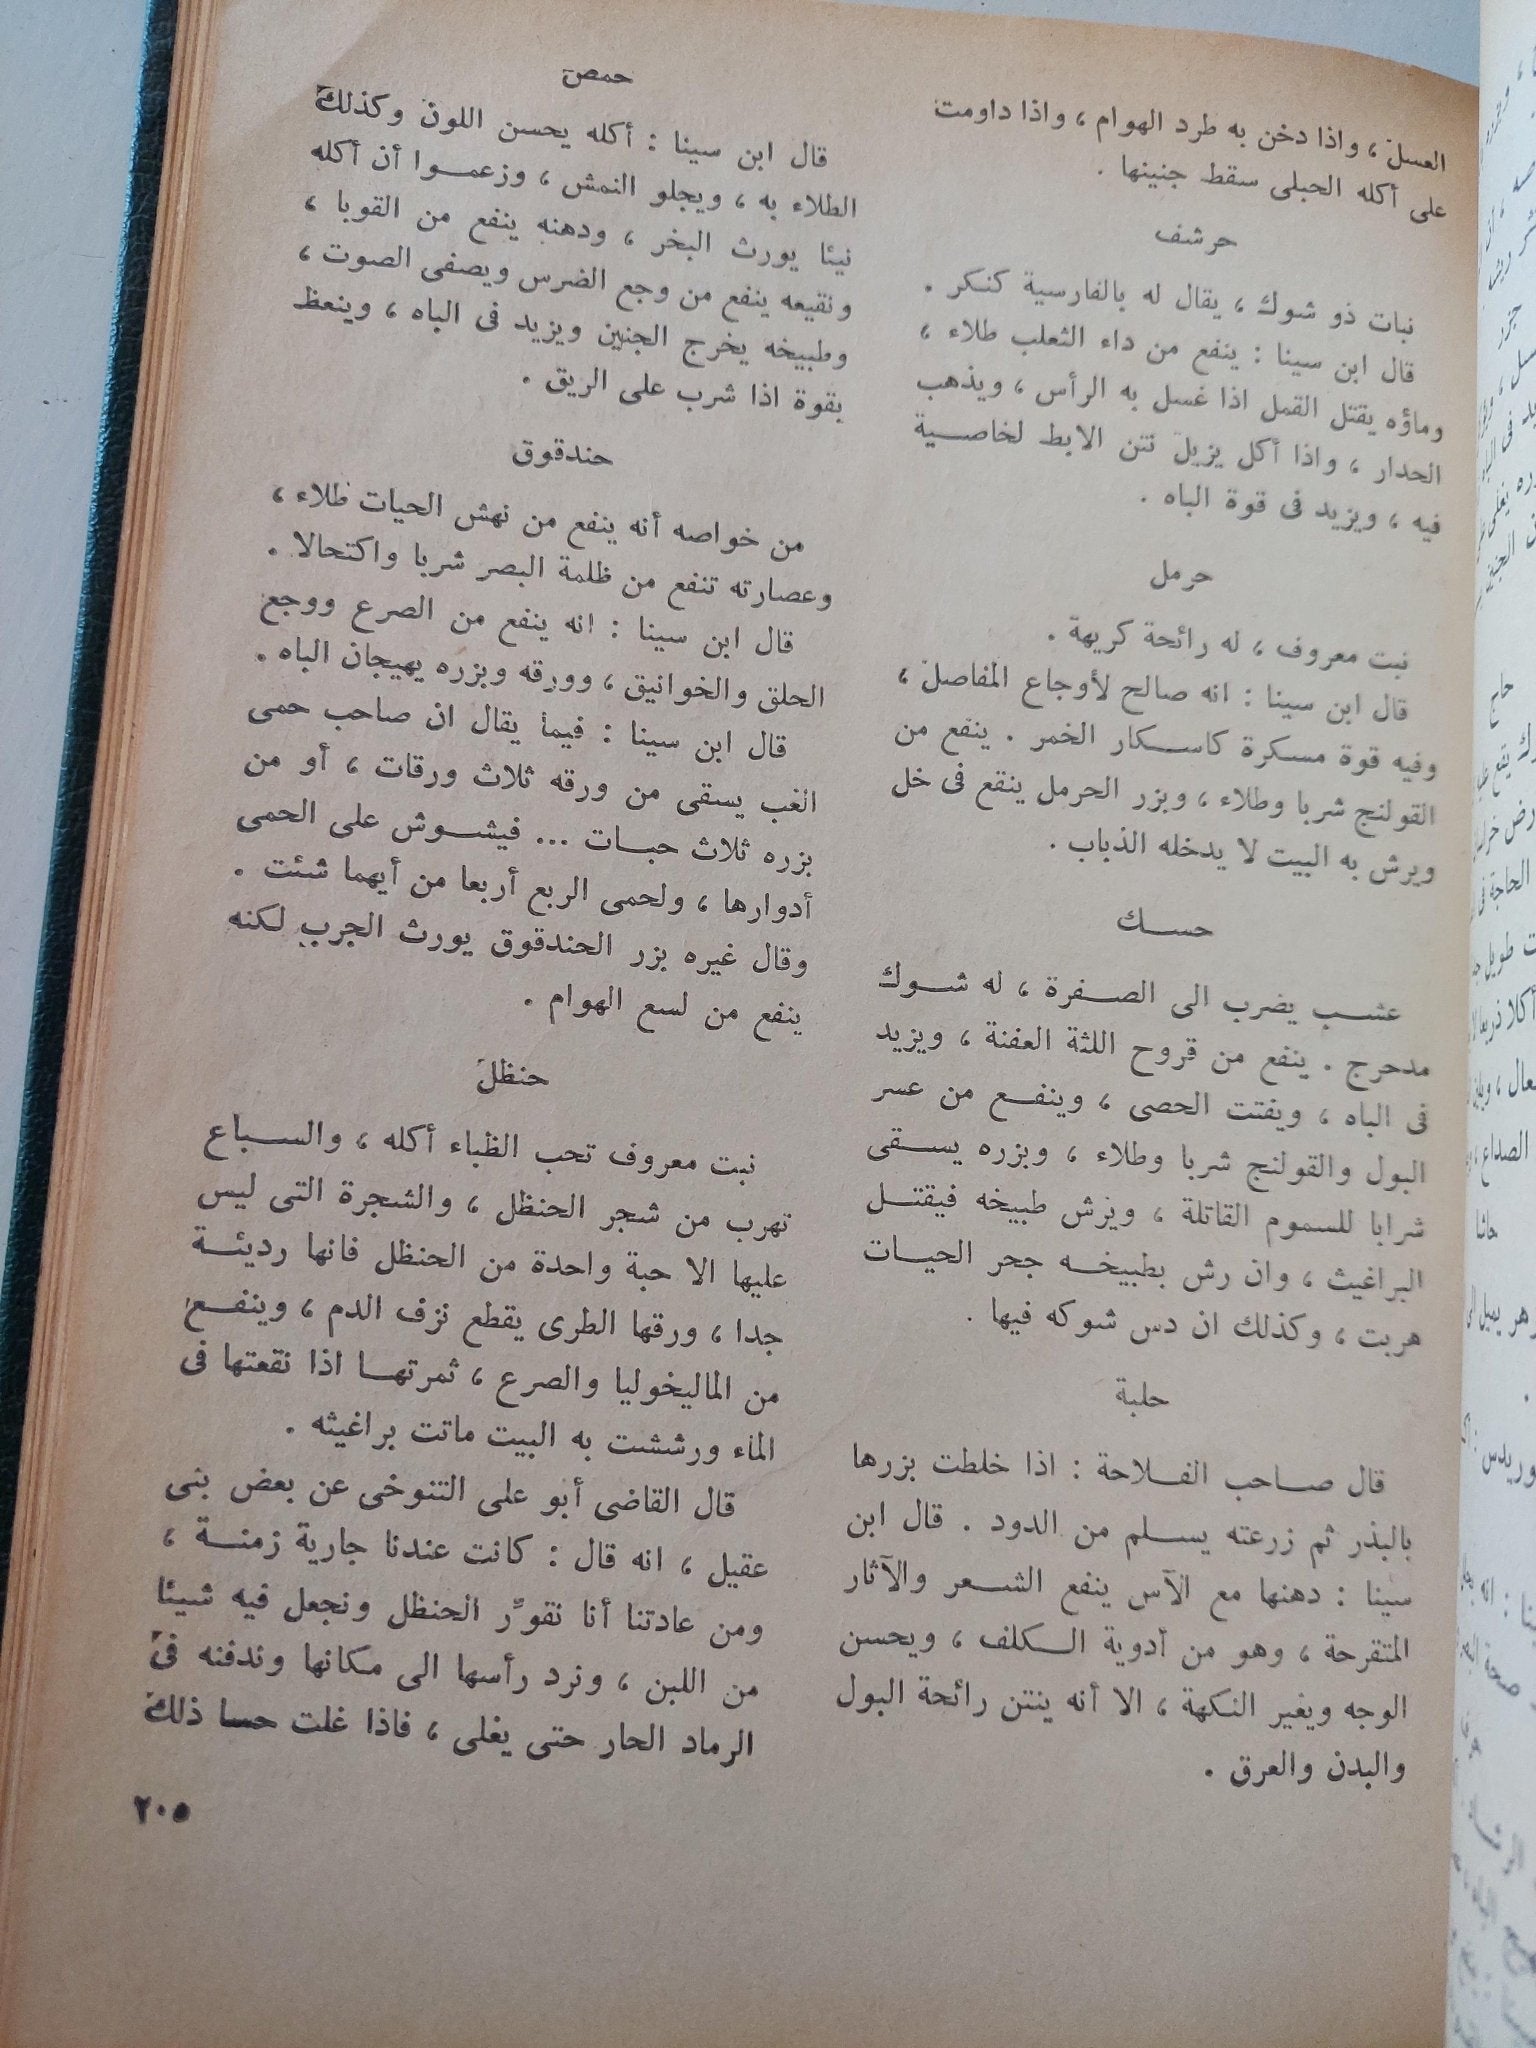 العسل ، واذا دخن به طرد الهوام ، واذا داومت
على أكله الحبلى سقط جنينها .
حرشف
نبات ذو شوك ، يقال له بالفارسية كنكر .
قال ابن سينا : ينفع من داء الثعلب طلاء ،
وماؤه يقتل القمل اذا غسل به الرأس ، ويذهب
الحدار ، واذا أكل يزيل نتن الابط لخاصية
فيه ، ويزيد فى قوة الباه .
حرمل
نبت معروف ، له رائحة كريهة .
قال ابن سينا : انه صالح لأوجاع المفاصل ،
وفيه قوة مسكرة كاسكار الخمر . ينفع من
القولنج شربا وطلاء ، وبزر الحرمل ينقع فى خل
ويرش به البيت لا يدخله الذباب .
حسك
عشب يضرب الى الصفرة ، له شوك
مدحرج . ينفع من قروح اللثة العفنة ، ويزيد
فى الباه ، ويفتت الحصى ، وينفع من عسر
البول والقولنج شربا وطلاء ، وبزره يسقى
شرابا للسموم القاتلة ، ويرش طبيخه فيقتل
البراغيث ، وان رش بطبيخه جحر الحيات
هربت ، وكذلك ان دس شوكه فيها .
حلبة
قال صاحب الفلاحة : اذا خلطت بزرها
بالبذر ثم زرعته يسلم من الدود . قال ابن
سينا : دهنها مع الآس ينفع الشعر والآثار
المتقرحة ، وهو من أدوية الكلف ، ويحسن
الوجه ويغير النكهة ، الا أنه ينتن رائحة البول
والبدن والعرق .
حمص
قال ابن سينا : أكله يحسن اللون وكذلك
الطلاء به ، ويجلو النمش ، وزعموا أن أكله
نيئا يورث البخر ، ودهنه ينفع من القوبا ،
ونقيعه ينفع من وجع الضرس ويصفى الصوت ،
وطبيخه يخرج الجنين ويزيد فى الباه ، وينعظ
بقوة اذا شرب على الريق .
حندقوق
من خواصه أنه ينفع من نهش الحيات طلاء ،
وعصارته تنفع من ظلمة البصر شربا واكتحالا .
قال ابن سينا : انه ينفع من الصرع ووجع
الحلق والخوانيق ، وورقه وبزره يهيجان الباه .
قال ابن سينا : فيما يقال ان صاحب حمى
الغب يسقى من ورقه ثلاث ورقات ، أو من
بزره ثلاث حبات ... فيشوش على الحمى
أدوارها ، ولحمى الربع أربعا من أيهما شئت .
وقال غيره بزر الحندقوق يورث الجرب لكنه
ينفع من لسع الهوام .
حنظل
نبت معروف تحب الظباء أكله ، والسباع
تهرب من شجر الحنظل ، والشجرة التى ليس
عليها الا حبة واحدة من الحنظل فانها رديئة
جدا ، ورقها الطرى يقطع نزف الدم ، وينفع
من الماليخوليا والصرع ، ثمرتها اذا نقعتها فى
الماء ورششت به البيت ماتت براغيثه .
قال القاضى أبو على التنوخى عن بعض بنى
عقيل ، انه قال : كانت عندنا جارية زمنة ،
ومن عادتنا أنا نقوّر الحنظل ونجعل فيه شيئا
من اللبن ، ونرد رأسها الى مكانها وندفنه فى
الرماد الحار حتى يغلى ، فاذا غلت حسا ذلك
٢٠٥